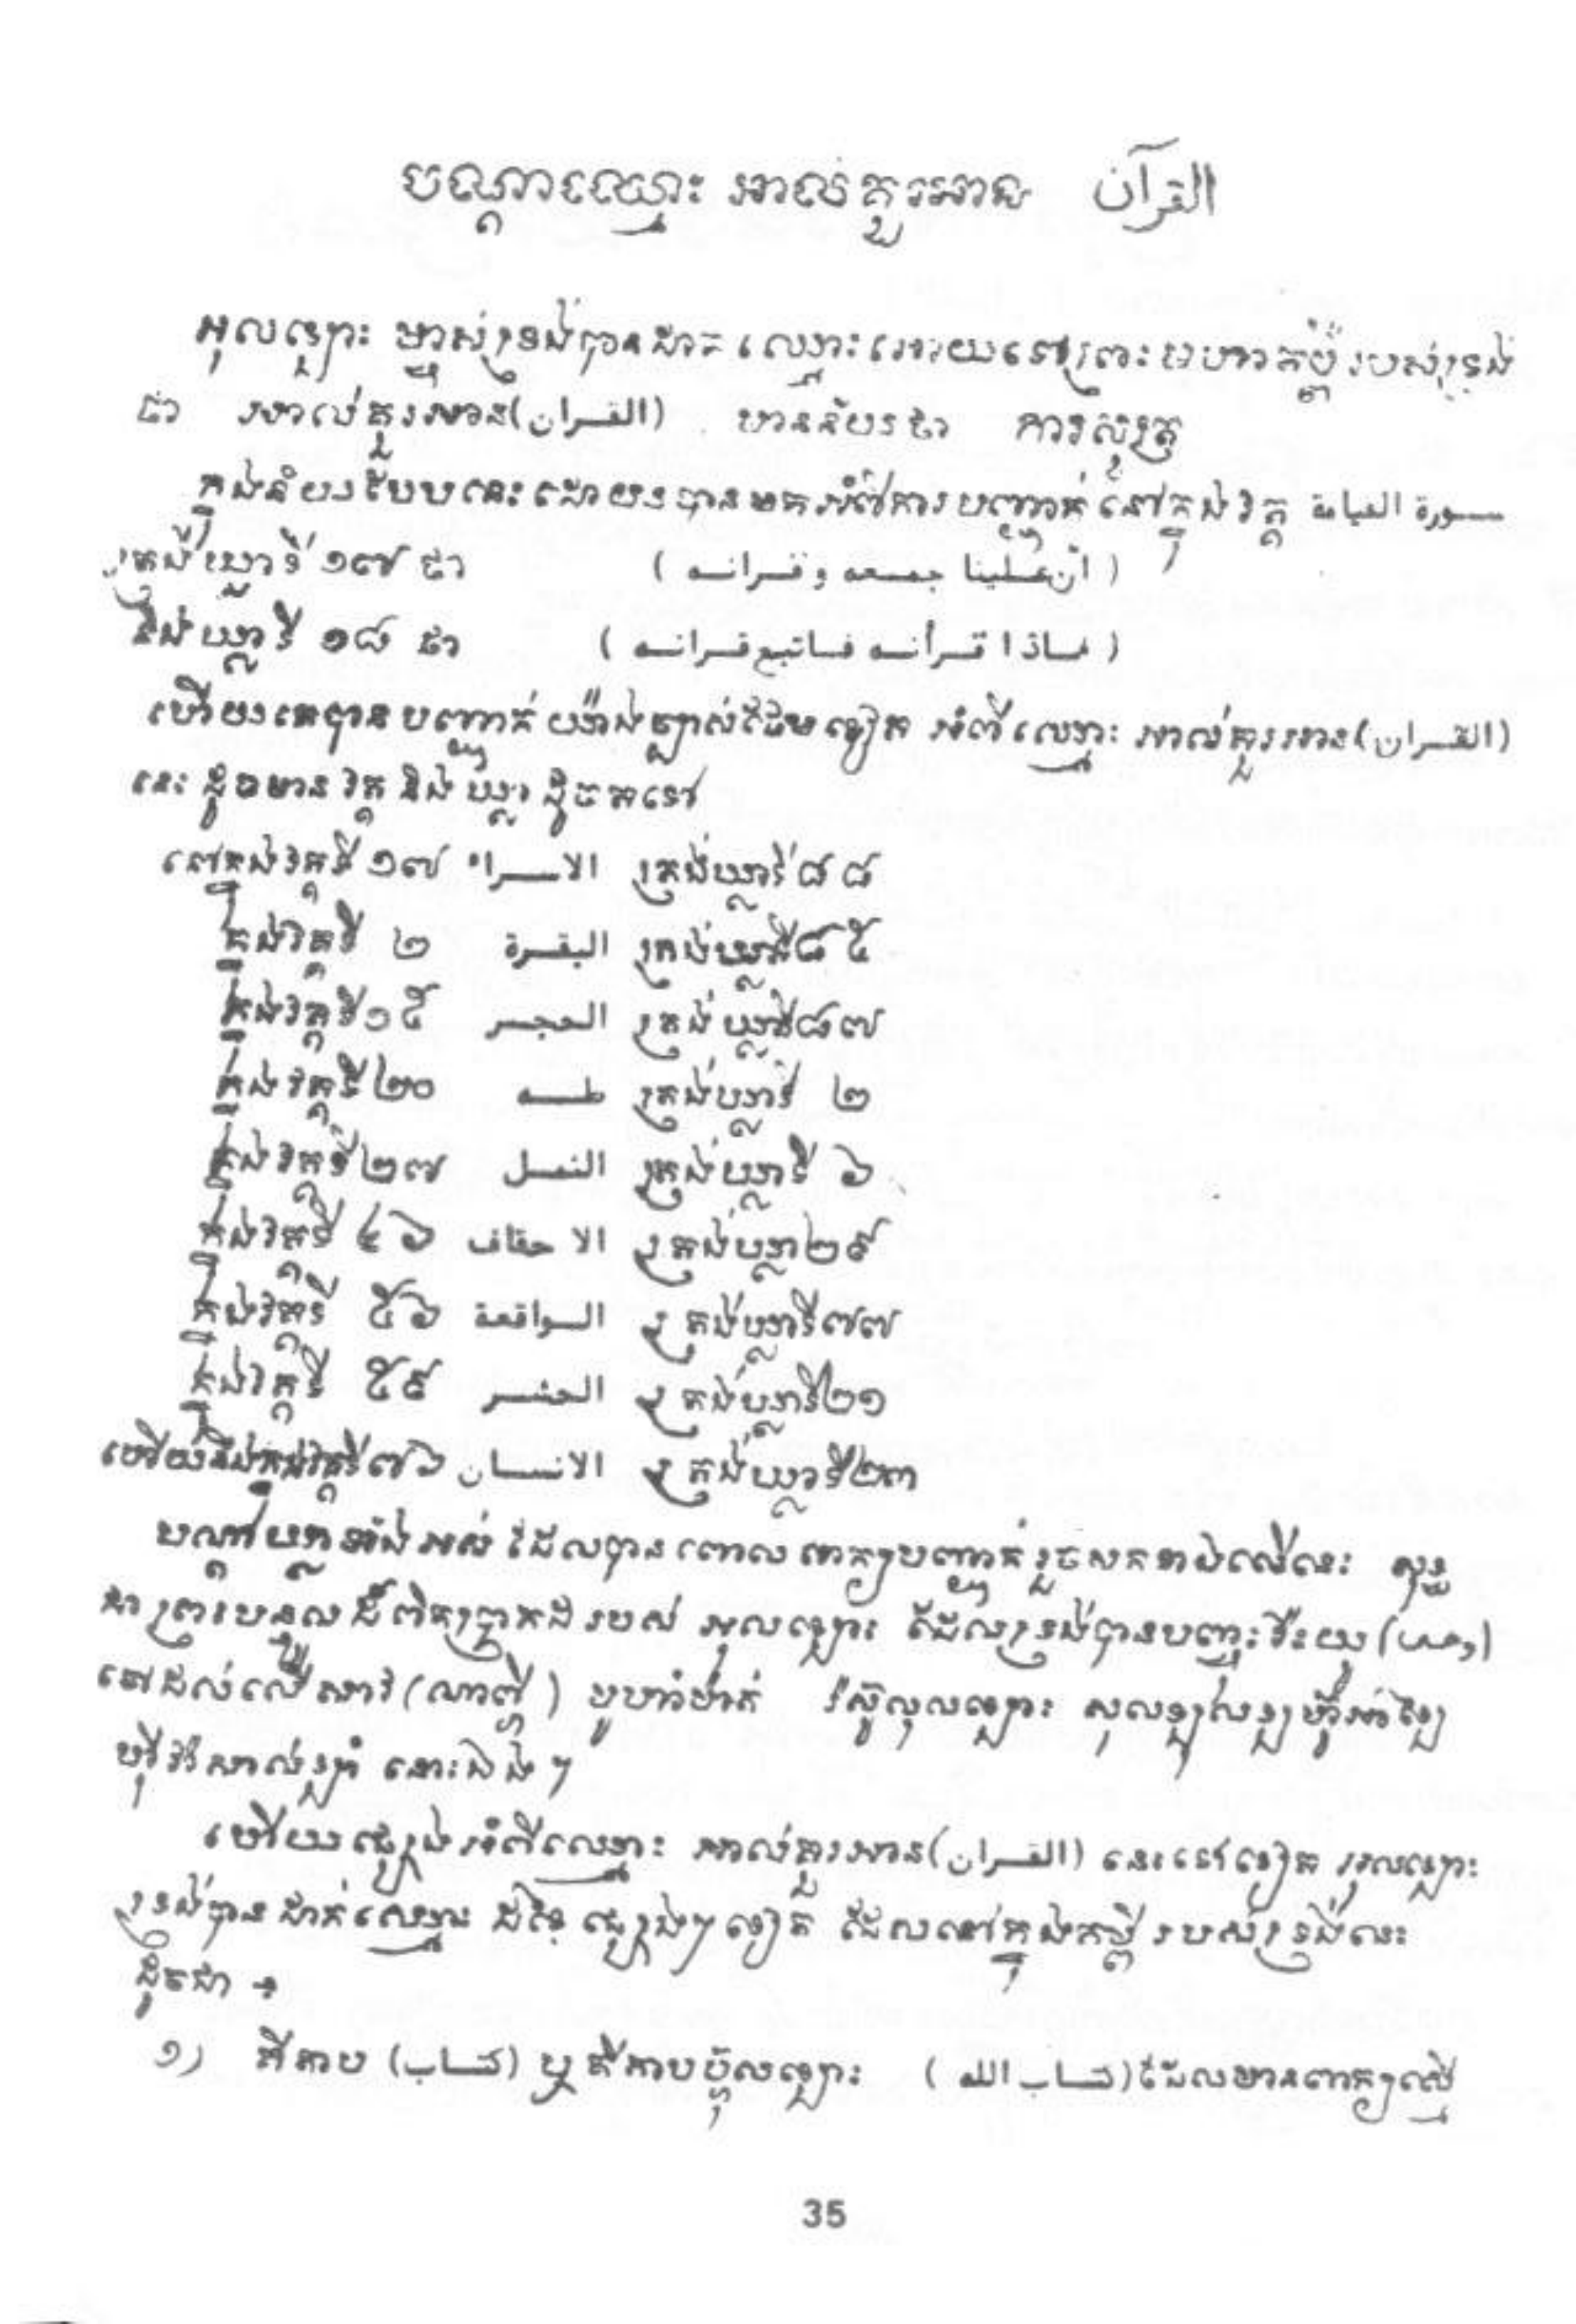 បណ្ដាឈ្មោះ អាល់គួរអាន القرآن
អុលឡោះ ម្ចាស់ទ្រង់បានដាក់ ឈ្មោះ អោយទៅព្រះមហាគម្ពីរ របស់ទ្រង់
ជា អាល់គួរអាន (القران) មានន័យថា ការសូត្រ
ក្នុងន័យបែបនេះ ដោយបានមកអំពីការបញ្ជាក់នៅក្នុងវគ្គ سورة القيامة
ត្រង់ឃ្លាទី ១៧ ថា ( ان علينا جمعه وقرانه )
និងឃ្លាទី ១៨ ថា ( فاذا قرأنه فاتبع قرانه )
ហើយគេបានបញ្ជាក់យ៉ាងច្បាស់ថែមទៀត អំពីឈ្មោះ អាល់គួរអាន (القران)
នេះ ដូចមាន វគ្គ និងឃ្លា ដូចតទៅ
នៅក្នុងវគ្គទី ១៧ الاسراء ត្រង់ឃ្លាទី ៨៨
ក្នុងវគ្គទី ២ البقرة ត្រង់ឃ្លាទី ៨៥
ក្នុងវគ្គទី ១៥ الحجر ត្រង់ឃ្លាទី ៨៧
ក្នុងវគ្គទី ២០ طه ត្រង់ឃ្លាទី ២
ក្នុងវគ្គទី ២៧ النمل ត្រង់ឃ្លាទី ៦
ក្នុងវគ្គទី ៤៦ الاحقاف ត្រង់ឃ្លា ២៩
ក្នុងវគ្គទី ៥៦ الواقعة ត្រង់ឃ្លាទី ៧៧
ក្នុងវគ្គទី ៥៩ الحشر ត្រង់ឃ្លាទី ២១
ហើយនិងក្នុងវគ្គទី ៧៦ الانسان ត្រង់ឃ្លាទី ២៣
បណ្ដាឃ្លាទាំងអស់ ដែលបានពោលពាក្យបញ្ជាក់រួចមកខាងលើនេះ សុទ្ធ
ជាព្រះបន្ទូលដ៏ពិតប្រាកដ របស់ អុលឡោះ ដែលទ្រង់បានបញ្ចុះវីះយូ (وحى)
ទៅដល់លើសារី (ណាពី) មូហាំម៉ាត់ រ៉ស៊ូលុលឡោះ
នោះឯងៗ
ហើយរៀងអំពីឈ្មោះ អាល់គួរអាន (القران) នេះទៅទៀត អុលឡោះ
ទ្រង់បានដាក់ឈ្មោះ ដទៃ ផ្សេងៗទៀត ដែលនៅក្នុងគម្ពីរ របស់ទ្រង់នេះ
ដូចជា →
១) គីតាប (كتاب) ឬ គីតាបប៊ុលឡោះ (كتاب الله) ដែលមានពាក្យស្មើ
35